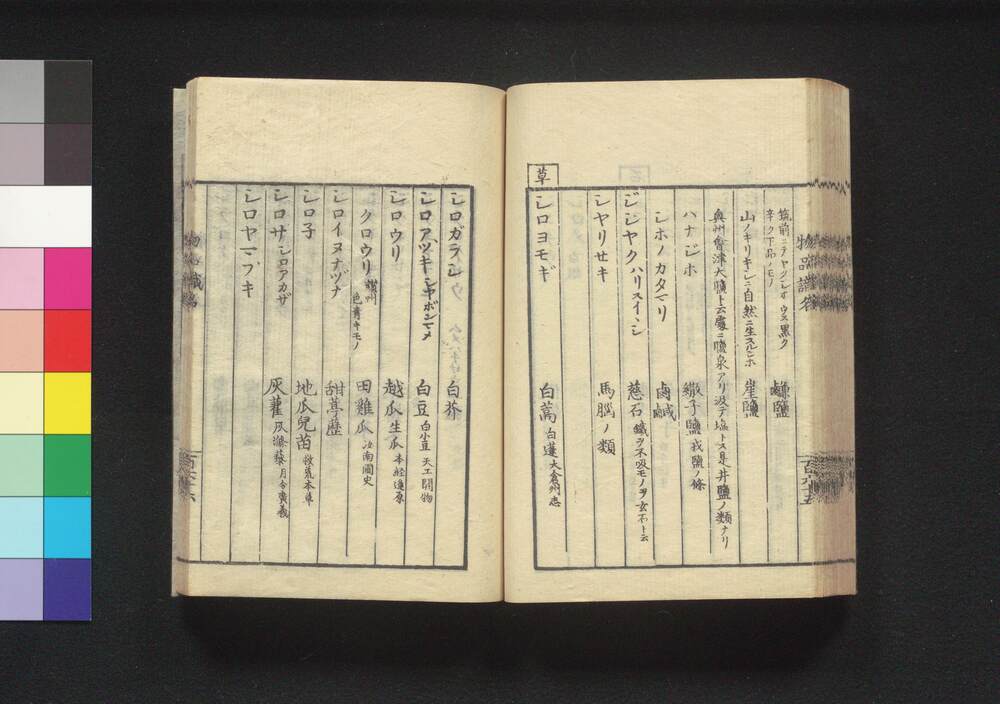 物品識名
筑前ニテヤクシホ ウス黒ク
辛ク下品ノモノ 鹻鹽
山ノキリキシニ自然ニ生スルシホ 崖鹽
奥州會津大鹽ト云處ニ鹽泉アリ汲テ塩トス是井鹽ノ類ナリ
ハナジホ 繖子鹽 戎鹽ノ條
シホノカタマリ 鹵鹹
ジシヤクハリスイイシ 慈石 鐵ヲ不吸モノヲ玄石ト云
シヤリセキ 馬腦ノ類
草
シロヨモギ 白蒿 白蓬 太倉州志
百六十五
シロガラシ 白芥
シロアヅキ シヤボンマメ 白豆 白小豆 天工開物
シロウリ 越瓜 生瓜 本經逢原
クロウリ 色青キモノ 田雞瓜 汝南圃史
シロイヌナヅナ 甜葶藶
シロ子 地瓜兒苗 救荒本草
シロザ シロアカザ 灰藋 灰滌藜 月令廣義
シロヤマブキ
物品識名
百六十六